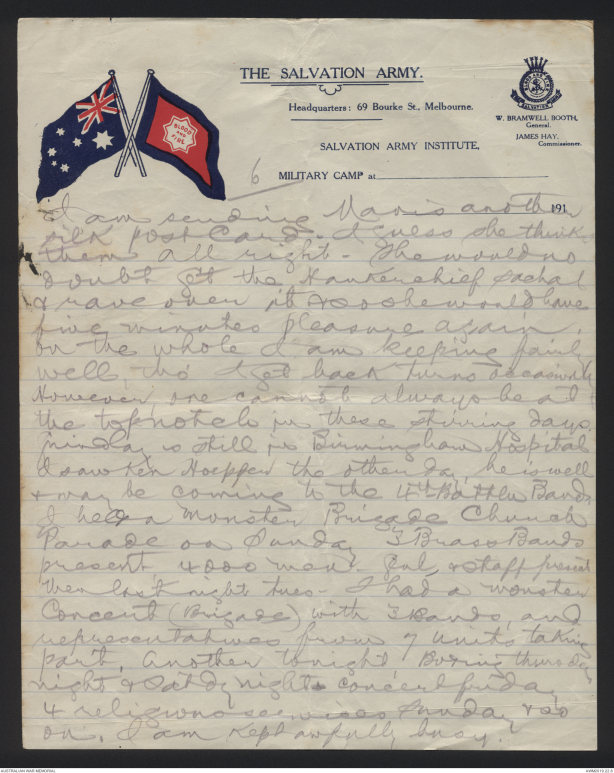 THE SALVATION ARMY.
Headquarters: 69 Bourke St., Melbourne.
W. BRAMWELL BOOTH,
General.
JAMES HAY,
Commissioner.
SALVATION ARMY INSTITUTE,
BLOOD AND FIRE
6
MILITARY CAMP at
191
I am sending Mavis another
silk post Card. I guess she think
them all right - She would no
doubt get the Hankerchief Sachat
& rave over it & so she would have
five minutes pleasure again.
On the whole I am keeping fairly
well, tho' I get back turns occasionally
However, one cannot always be at
the top notch in these stirring days.
is still in Birmingham Hospital
I saw Ken Hoepper the other day, he is well
& may be coming to the 4th Battln Band.
I held a Monster Brigade Church
Parade on Sunday 3 Brass Bands
present, 4000 men. Gnl, & staff present
then last night Tues - I had a monster
Concert (Brigade) with 3 Bands, and
representatives from 7 units taking
part. Another tonight Boxing thursday
night & Satdy night - concert friday
4 religious services Sunday & so
on. I am kept awfully busy.
AUSTRALIAN WAR MEMORIAL